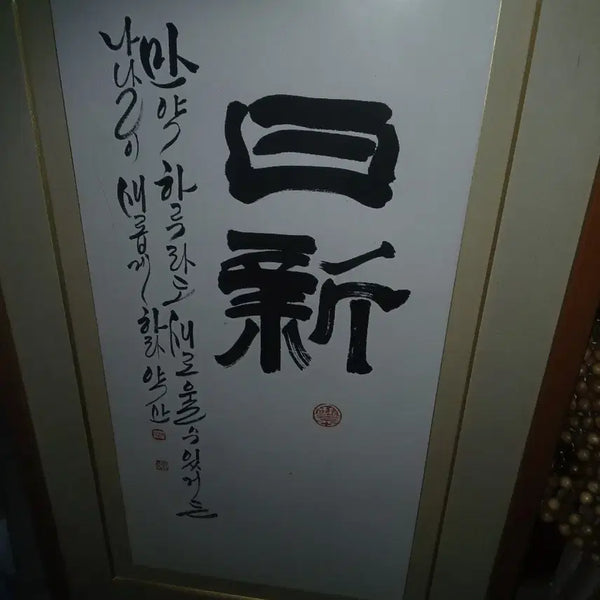 日新
만약 하루라도 새로울 수 있거든
나날이 새롭게 하라 약산